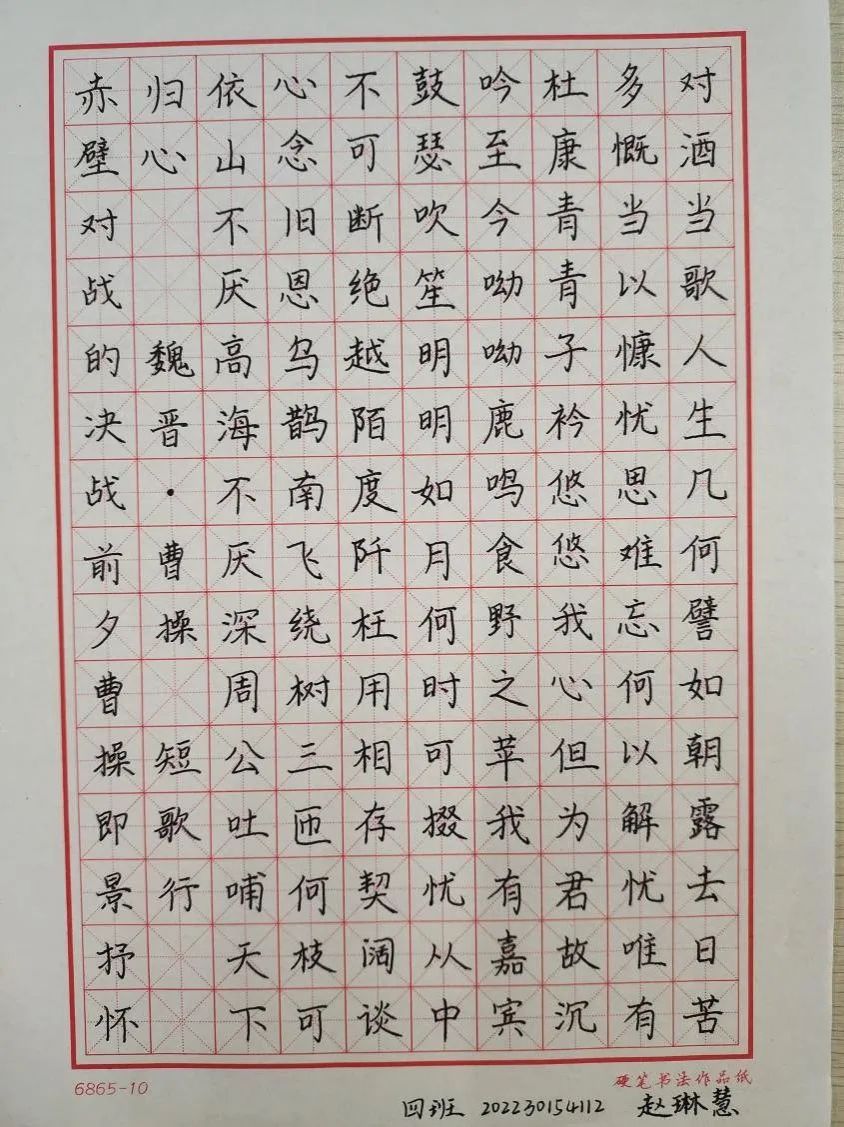 对酒当歌人生几何譬如朝露去日苦
多慨当以慷忧思难忘何以解忧唯有
杜康青青子衿悠悠我心但为君故沉
吟至今呦呦鹿鸣食野之苹我有嘉宾
鼓瑟吹笙明明如月何时可掇忧从中
不可断绝越陌度阡枉用相存契阔谈
心念旧恩乌鹊南飞绕树三匝何枝可
依山不厌高海不厌深周公吐哺天下
归心 魏晋·曹操 短歌行
赤壁对战的决战前夕曹操即景抒怀
6865-10
硬笔书法作品纸
四班 202230154112 赵琳慧